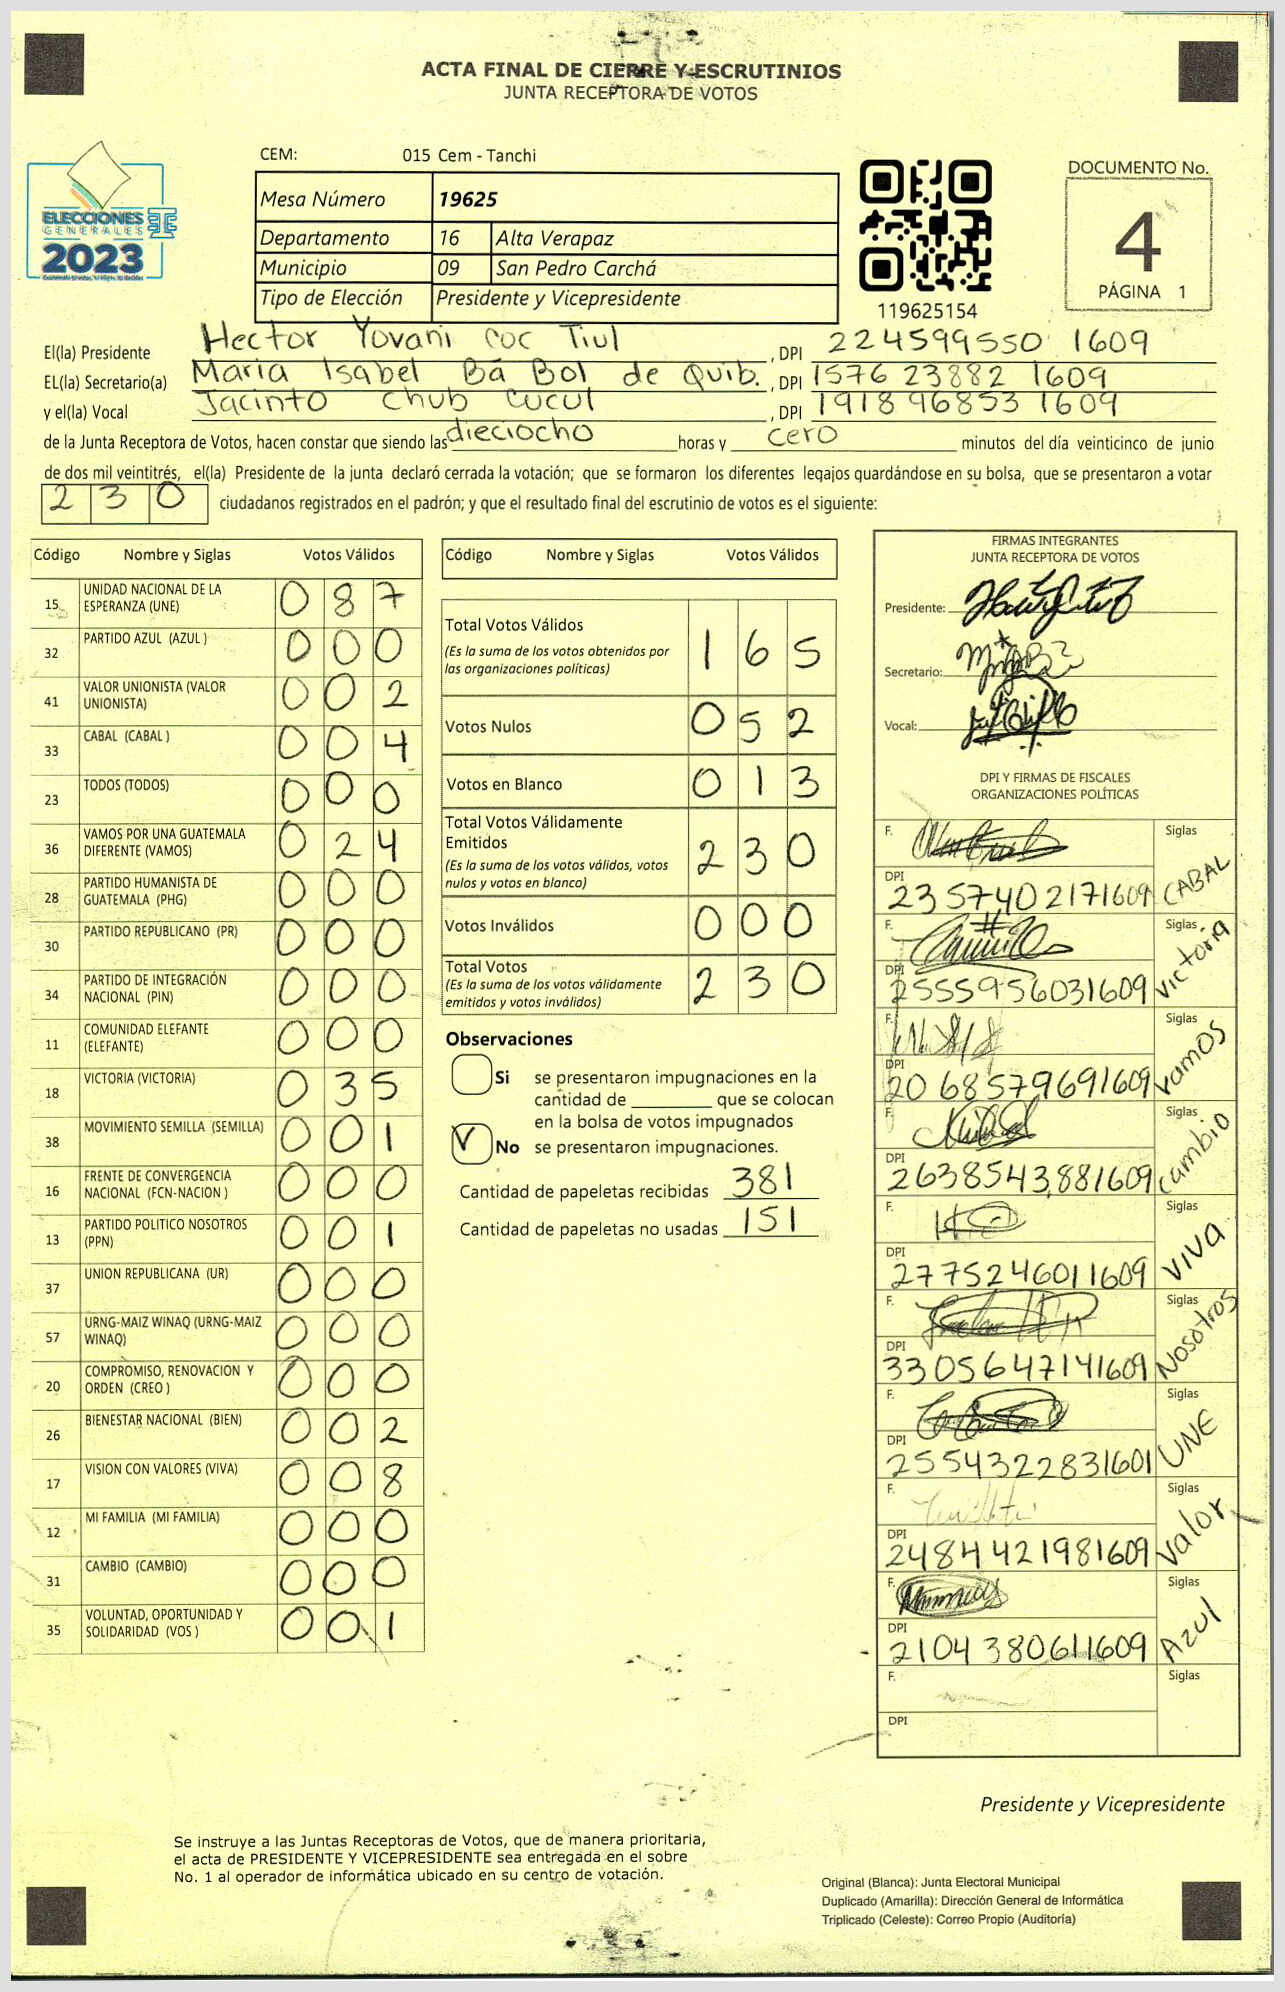 ACTA FINAL DE CIERRE Y ESCRUTINIOS
JUNTA RECEPTORA DE VOTOS
CEM: 015 Cem - Tanchi
ELECCIONES
GENERALES
2023
Mesa Número 19625
Departamento 16 Alta Verapaz
Municipio 09 San Pedro Carchá
Tipo de Elección Presidente y Vicepresidente
119625154
DOCUMENTO No.
4
PÁGINA 1
El(la) Presidente Hector Yovani Coc Tiul, DPI 224599550 1609
EL(la) Secretario(a) Maria Isabel Bá Bol de Quib., DPI 1576 23882 1609
y el(la) Vocal Jacinto Chub Cucul, DPI 1918 96853 1609
de la Junta Receptora de Votos, hacen constar que siendo las dieciocho horas y cero minutos del día veinticinco de junio
de dos mil veintitrés, el(la) Presidente de la junta declaró cerrada la votación; que se formaron los diferentes legajos guardándose en su bolsa, que se presentaron a votar
230 ciudadanos registrados en el padrón; y que el resultado final del escrutinio de votos es el siguiente:
Código Nombre y Siglas Votos Válidos
15 UNIDAD NACIONAL DE LA ESPERANZA (UNE) 087
32 PARTIDO AZUL (AZUL ) 000
41 VALOR UNIONISTA (VALOR UNIONISTA) 002
33 CABAL (CABAL ) 004
23 TODOS (TODOS) 000
36 VAMOS POR UNA GUATEMALA DIFERENTE (VAMOS) 024
28 PARTIDO HUMANISTA DE GUATEMALA (PHG) 000
30 PARTIDO REPUBLICANO (PR) 000
34 PARTIDO DE INTEGRACIÓN NACIONAL (PIN) 000
11 COMUNIDAD ELEFANTE (ELEFANTE) 000
18 VICTORIA (VICTORIA) 035
38 MOVIMIENTO SEMILLA (SEMILLA) 001
16 FRENTE DE CONVERGENCIA NACIONAL (FCN-NACION ) 000
13 PARTIDO POLITICO NOSOTROS (PPN) 001
37 UNION REPUBLICANA (UR) 000
57 URNG-MAIZ WINAQ (URNG-MAIZ WINAQ) 000
20 COMPROMISO, RENOVACION Y ORDEN (CREO ) 000
26 BIENESTAR NACIONAL (BIEN) 002
17 VISION CON VALORES (VIVA) 008
12 MI FAMILIA (MI FAMILIA) 000
31 CAMBIO (CAMBIO) 000
35 VOLUNTAD, OPORTUNIDAD Y SOLIDARIDAD (VOS ) 001
Código Nombre y Siglas Votos Válidos
Total Votos Válidos 165
(Es la suma de los votos obtenidos por
las organizaciones políticas)
Votos Nulos 052
Votos en Blanco 013
Total Votos Válidamente
Emitidos 230
(Es la suma de los votos válidos, votos
nulos y votos en blanco)
Votos Inválidos 000
Total Votos 230
(Es la suma de los votos válidamente
emitidos y votos inválidos)
Observaciones
Si se presentaron impugnaciones en la
cantidad de ________ que se colocan
en la bolsa de votos impugnados
V No se presentaron impugnaciones.
Cantidad de papeletas recibidas 381
Cantidad de papeletas no usadas 151
FIRMAS INTEGRANTES
JUNTA RECEPTORA DE VOTOS
Presidente:
Secretario:
Vocal:
DPI Y FIRMAS DE FISCALES
ORGANIZACIONES POLÍTICAS
F. Siglas
DPI 2357402171609 CABAL
F. Siglas
DPI 2555956031609 Victoria
F. Siglas
DPI 2068579691609 Vamos
F. Siglas
DPI 2638543881609 Cambio
F. Siglas
DPI 2775246011609 VIVA
F. Siglas
DPI 3305647141609 Nosotros
F. Siglas
DPI 2554322831601 UNE
F. Siglas
DPI 2484421981609 Valor
F. Siglas
DPI 2104380611609 Azul
F. Siglas
DPI
Presidente y Vicepresidente
Se instruye a las Juntas Receptoras de Votos, que de manera prioritaria,
el acta de PRESIDENTE Y VICEPRESIDENTE sea entregada en el sobre
No. 1 al operador de informática ubicado en su centro de votación.
Original (Blanca): Junta Electoral Municipal
Duplicado (Amarilla): Dirección General de Informática
Triplicado (Celeste): Correo Propio (Auditoría)